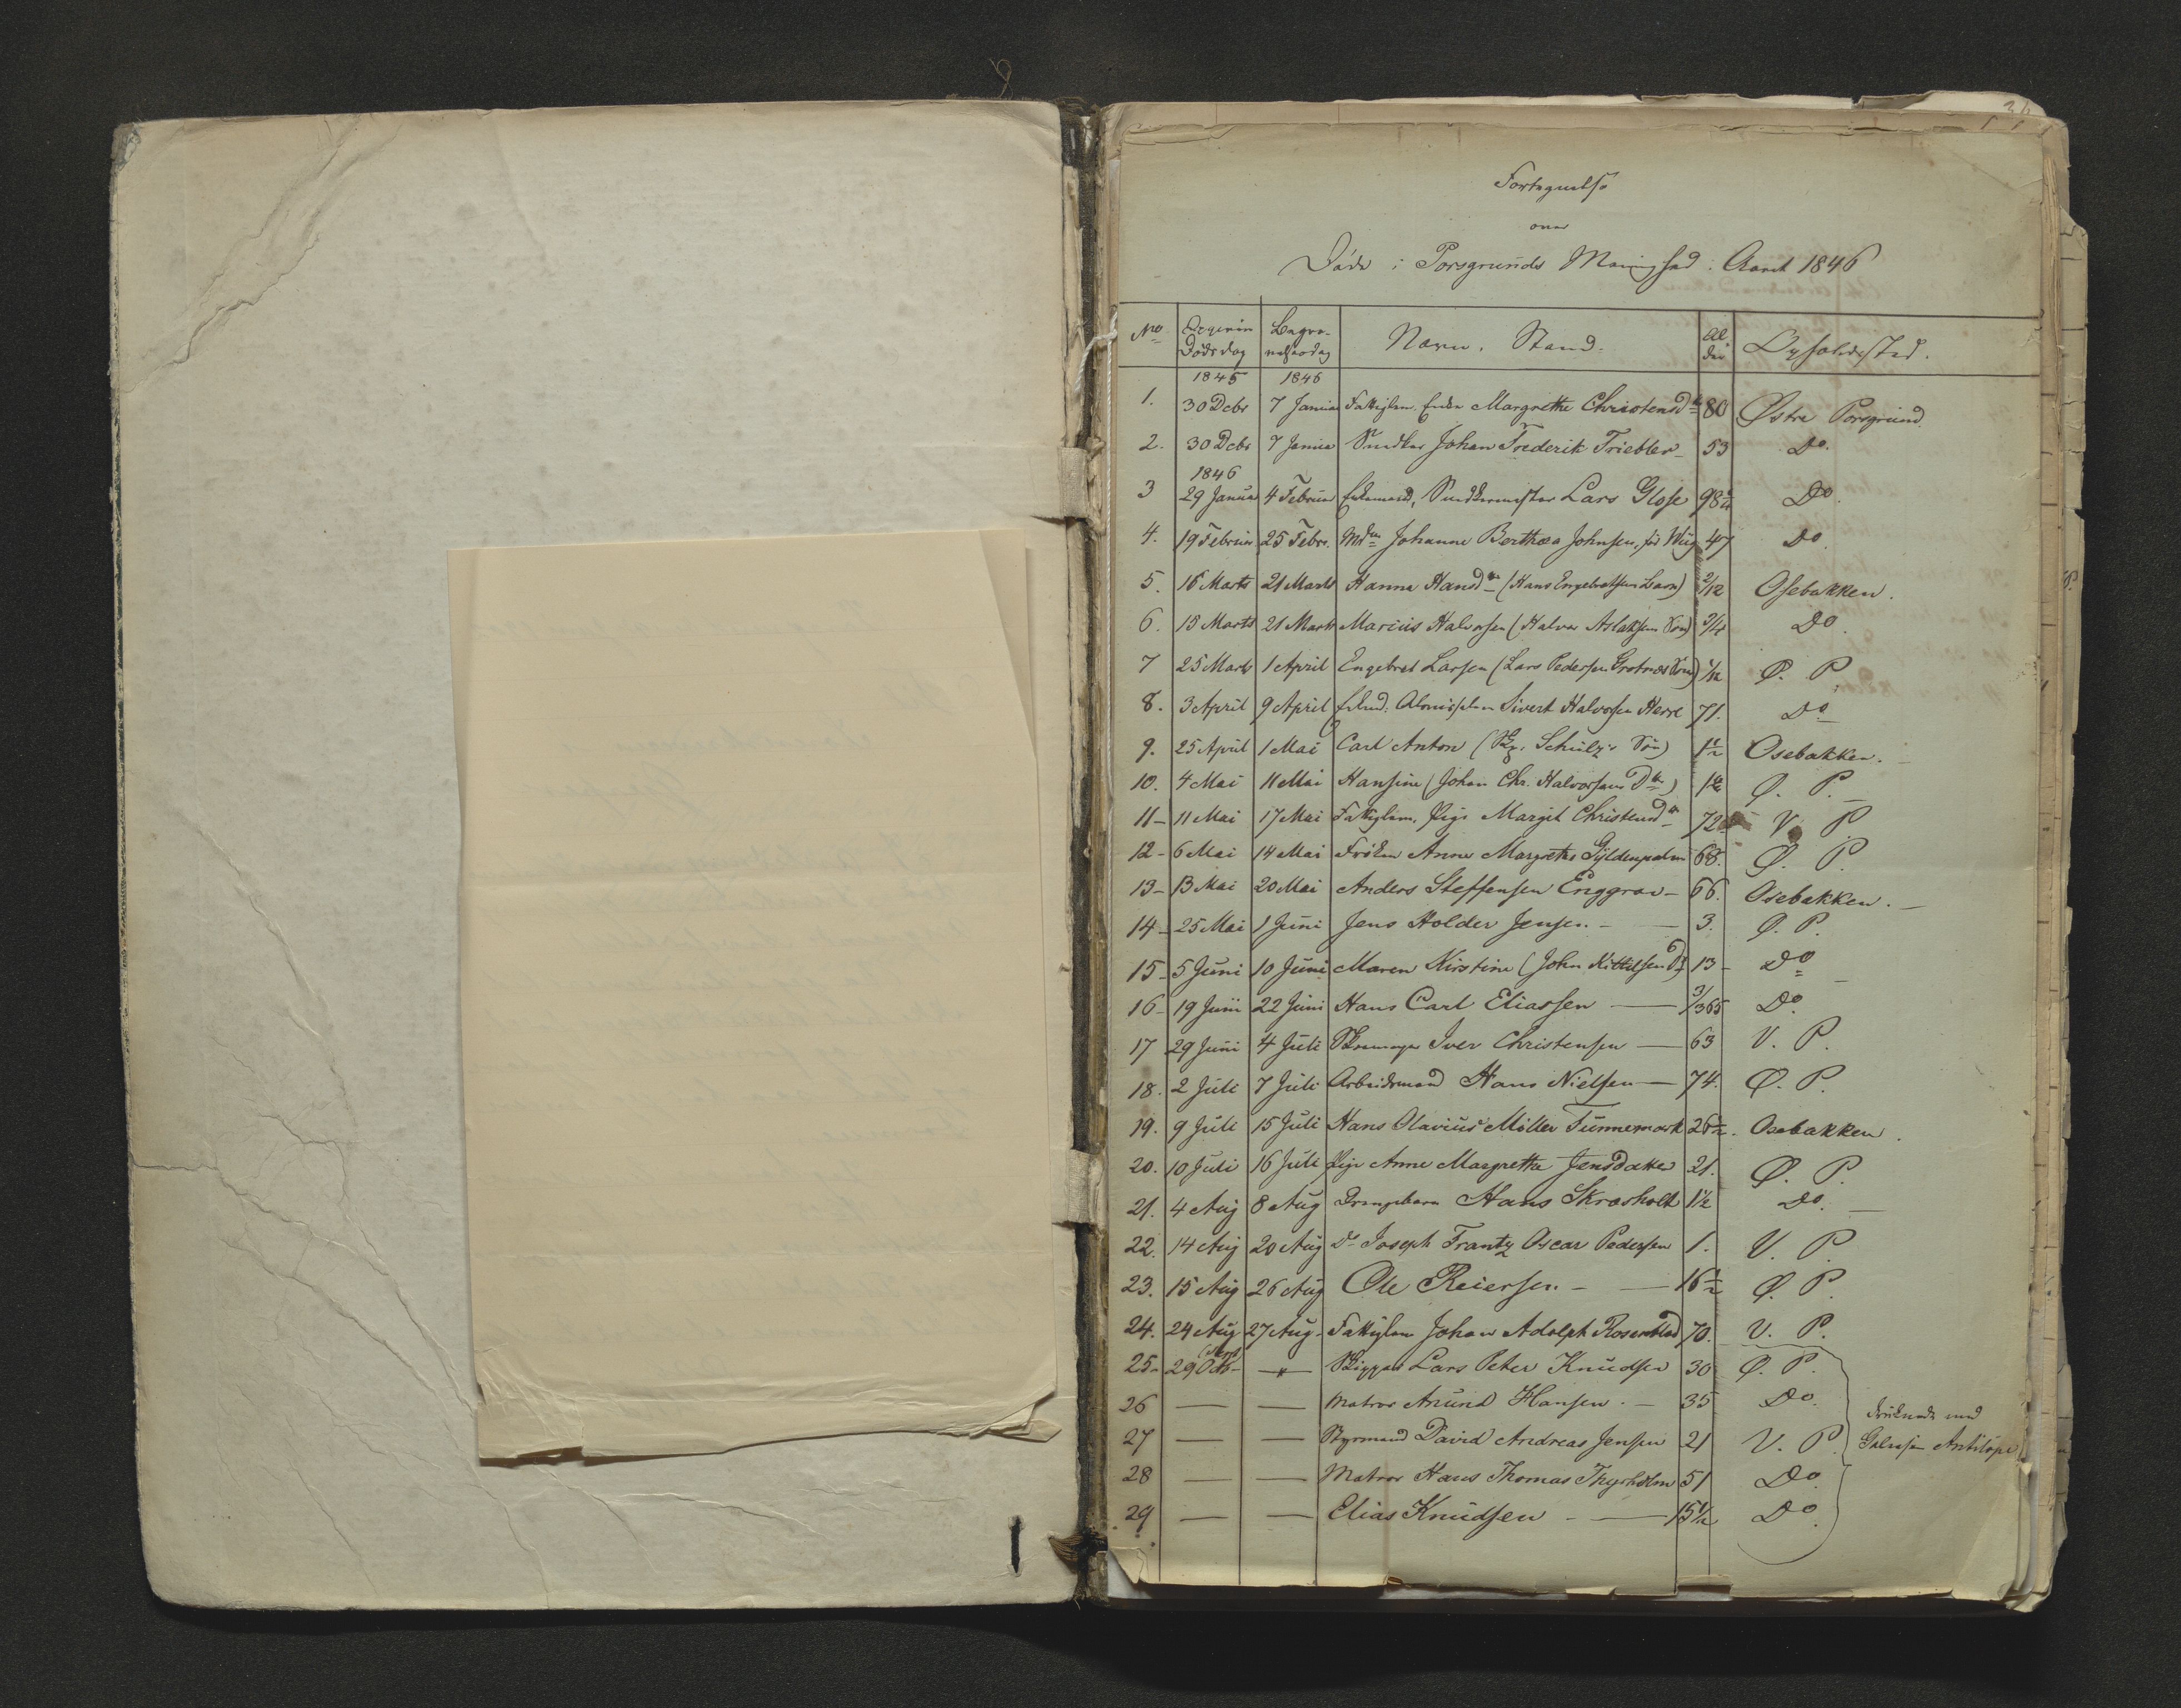 Fortegnelse
over
Døde i Porsgrunds Menighed i Aaret 1846
No Dødsdag Begravelsesdag Navn. Stand. Alder Opholdssted.
1845 1846
1. 30 Debr 7 Januar Fattiglem. Enke Margrethe Christensdtr 80 Østre Porsgrund
2. 30 Debr 7 Januar Snedker Johan Frederik Triebler 53 Do.
1846
3 29 Januar 4 Februar Enkemand, Snedkermester Lars Glose 98 Do.
4. 19 Februar 25 Febr. Mdm Johanne Berthea Johnsen, 47 Do.
5. 16 Marts 21 Marts Hanna Hansdtr (Hans Engebretsens Barn) 2/12 Osebakken.
6. 15 Marts 21 Marts Marius Halvorsen (Halvor Aslaksens Søn) 3/4 Do.
7 25 Marts 1 April Engebret Larsen (Lars Pedersen Grotnes Søn) Ø. P.
8. 3 April 9 April Sivert Halvorsen Herre 71. Do
9. 25 April 1 Mai Carl Anton ( Schulz's Søn) 1 1/2 Osebakken.
10. 4 Mai 11 Mai Hansine (Johan Chr. Halvorsens Dtr) Ø. P.
11 11 Mai 17 Mai Fattiglem. Pige Margit Christensdtr 72 V. P.
12 6 Mai 14 Mai Frøken Anne Margrethe Gyldenpalm 68. Ø. P.
13 13 Mai 20 Mai Anders Steffensen Enggrav 66. Osebakken.
14 25 Mai 1 Juni Jens Holder Jensen 3. Ø. P.
15 5 Juni 10 Juni Maren Kirstine (John Kittilsens D) 13 Do
16 19 Juni 22 Juni Hans Carl Eliassen 3/365 Do.
17 29 Juni 4 Juli Iver Christensen 63 V. P.
18. 2 Juli 7 Juli Arbeidsmand Hans Nielsen 74. Ø. P.
19. 9 Juli 15 Juli Hans Olavius Møller Tunnemark 26 1/2 Osebakken.
20. 10 Juli 16 Juli Pige Anne Margrethe Jensdatter 21. Ø. P.
21. 4 Aug 8 Aug Drengebarn Hans Skrosholt 1 1/2 Do.
22. 14 Aug 20 Aug Do Joseph Frantz Oscar Pedersen 1. V. P.
23. 15 Aug 26 Aug Ole Reiersen 16 1/2 Ø. P.
24. 24 Aug 27 Aug. Fattiglem Johan Adolph Rosenblad 70. V. P.
25 29 Skipper Lars Peter Knudsen 30 Ø. P.
26 Matros Anund Hansen. 35 Do.
druknede med
27 Styrmand David Andreas Jensen 21 V. P.
Galeasen Antilope
28 Matros Hans Thomas Thyrholm 51 Do.
29 Elias Knudsen 15 1/2 Do.